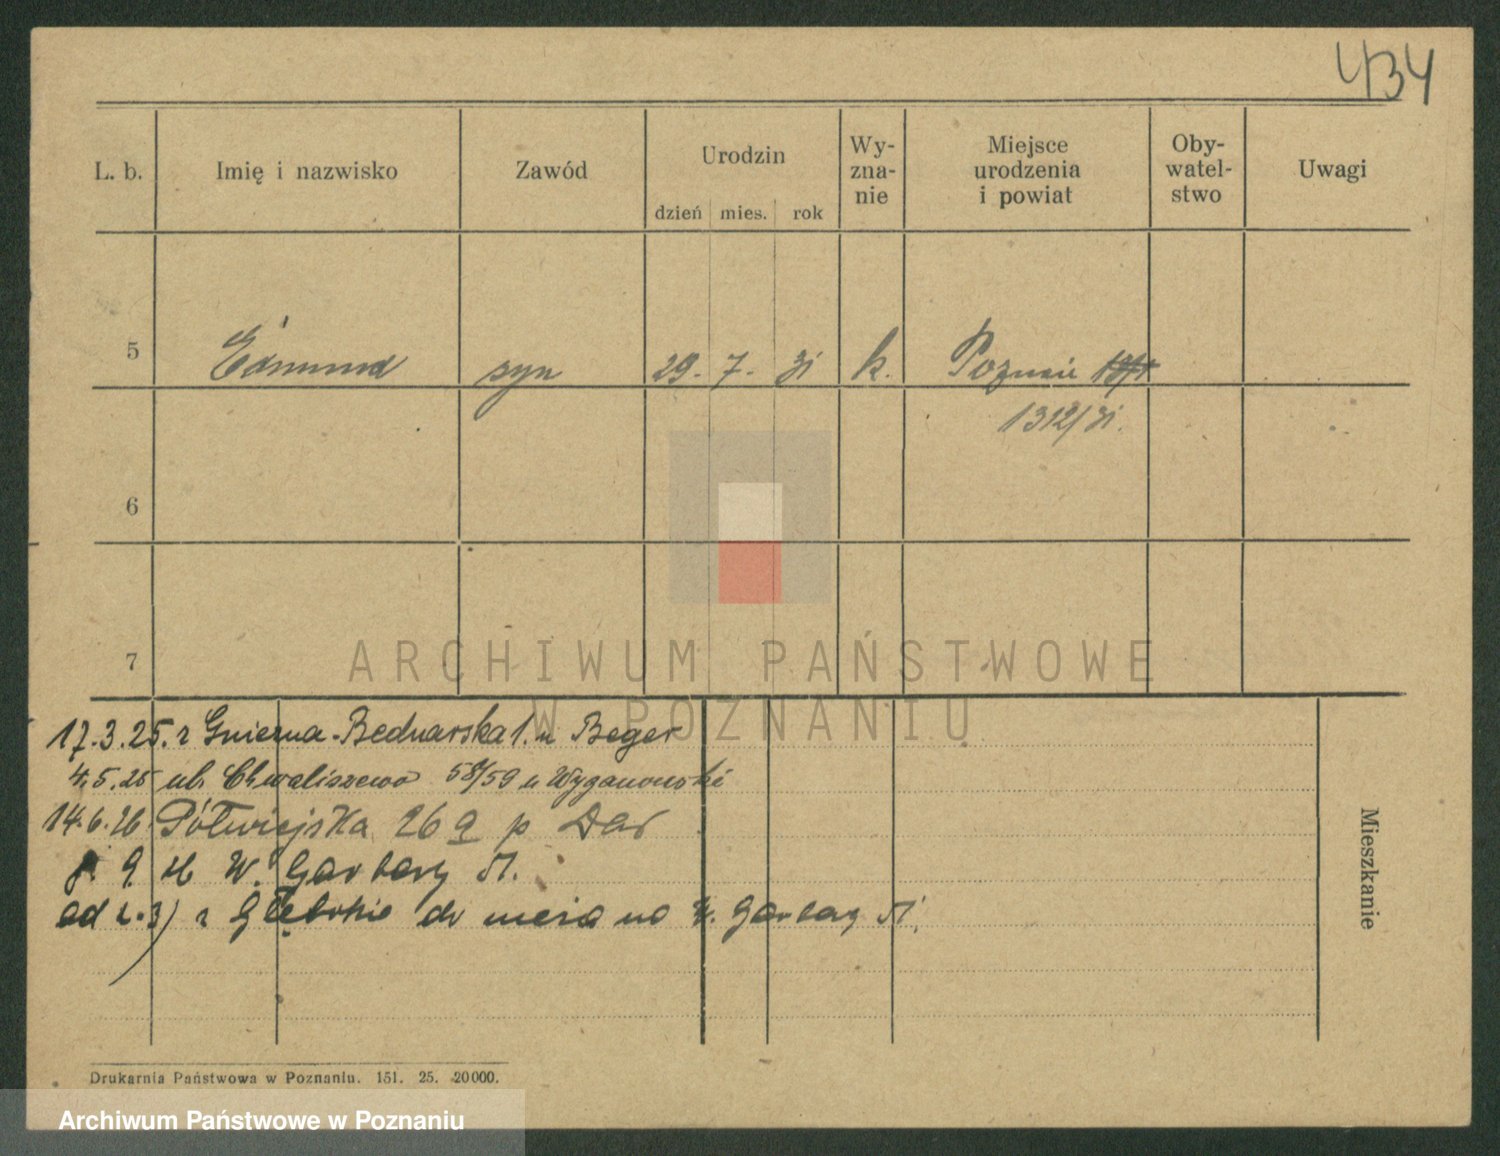 434
L. b. Imię i nazwisko Zawód Urodzin dzień mies. rok Wy-zna-nie Miejsce urodzenia i powiat Oby-watel-stwo Uwagi
5 Edmund syn 29. 7. 31 k. Poznań
1312/31.
6
7
ARCHIWUM PAŃSTWOWE
W POZNANIU
17.3.25. z Gniezna - Bednarska 1. u Beger
4.5.25 ul. Chwaliszewo 58/59 u Wyganowski
14.6.26. Półwiejska 26 a p
9. W. Garbary
od z Głębokie do męża na W. Garbary
Mieszkanie
Drukarnia Państwowa w Poznaniu. 151. 25. 20000.
Archiwum Państwowe w Poznaniu